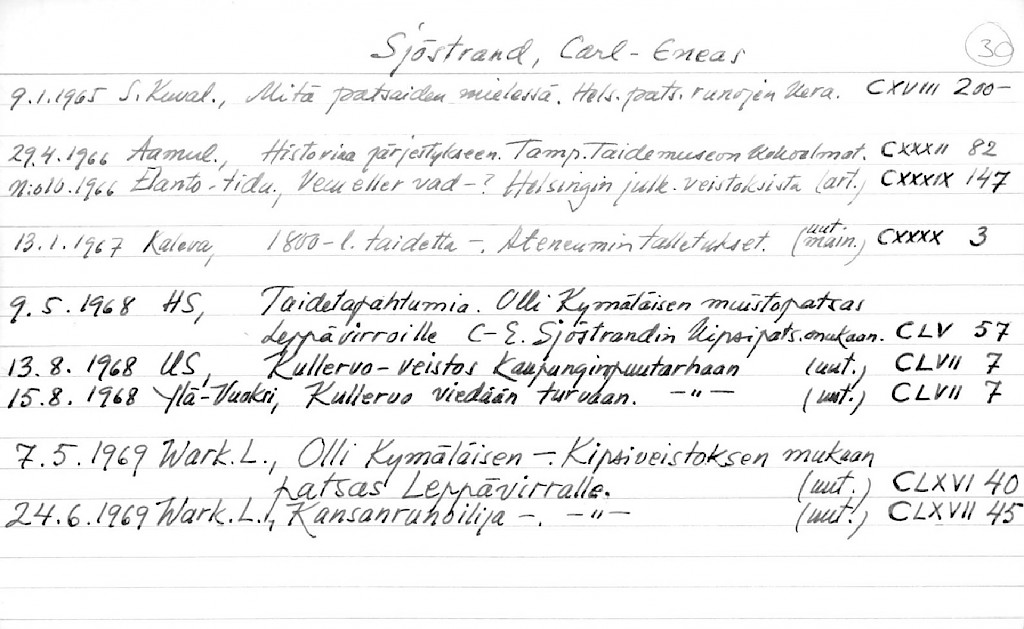 Sjöstrand, Carl-Eneas 30
9.1.1965 S.Kuval., Mitä patsaiden mielessä. Hels. pats. runojen kera. CXVIII 200-
29.4.1966 Aamul., Historiaa järjestykseen. Tamp. Taidemuseon kokoelmat. CXXXII 82
N:o 10.1966 Elanto-tidn., Vem eller vad -? Helsingin julk. veistoksista (art.) CXXXIX 147
13.1.1967 Kaleva, 1800-l. taidetta -. Ateneumin talletukset. (uut. main.) CXXXX 3
9.5.1968 HS, Taidetapahtumia. Olli Kymäläisen muistopatsas
Leppävirroille C-E. Sjöstrandin kipsipats. mukaan. CLV 57
13.8.1968 US, Kullervo-veistos Kaupunginpuutarhaan (uut.) CLVII 7
15.8.1968 Ylä-Vuoksi, Kullervo viedään turvaan. -"- (uut.) CLVII 7
7.5.1969 Wark.L., Olli Kymäläisen -. Kipsiveistoksen mukaan
patsas Leppävirralle. (uut.) CLXVI 40
24.6.1969 Wark.L., Kansanrunoilija -. -"- (uut.) CLXVII 45